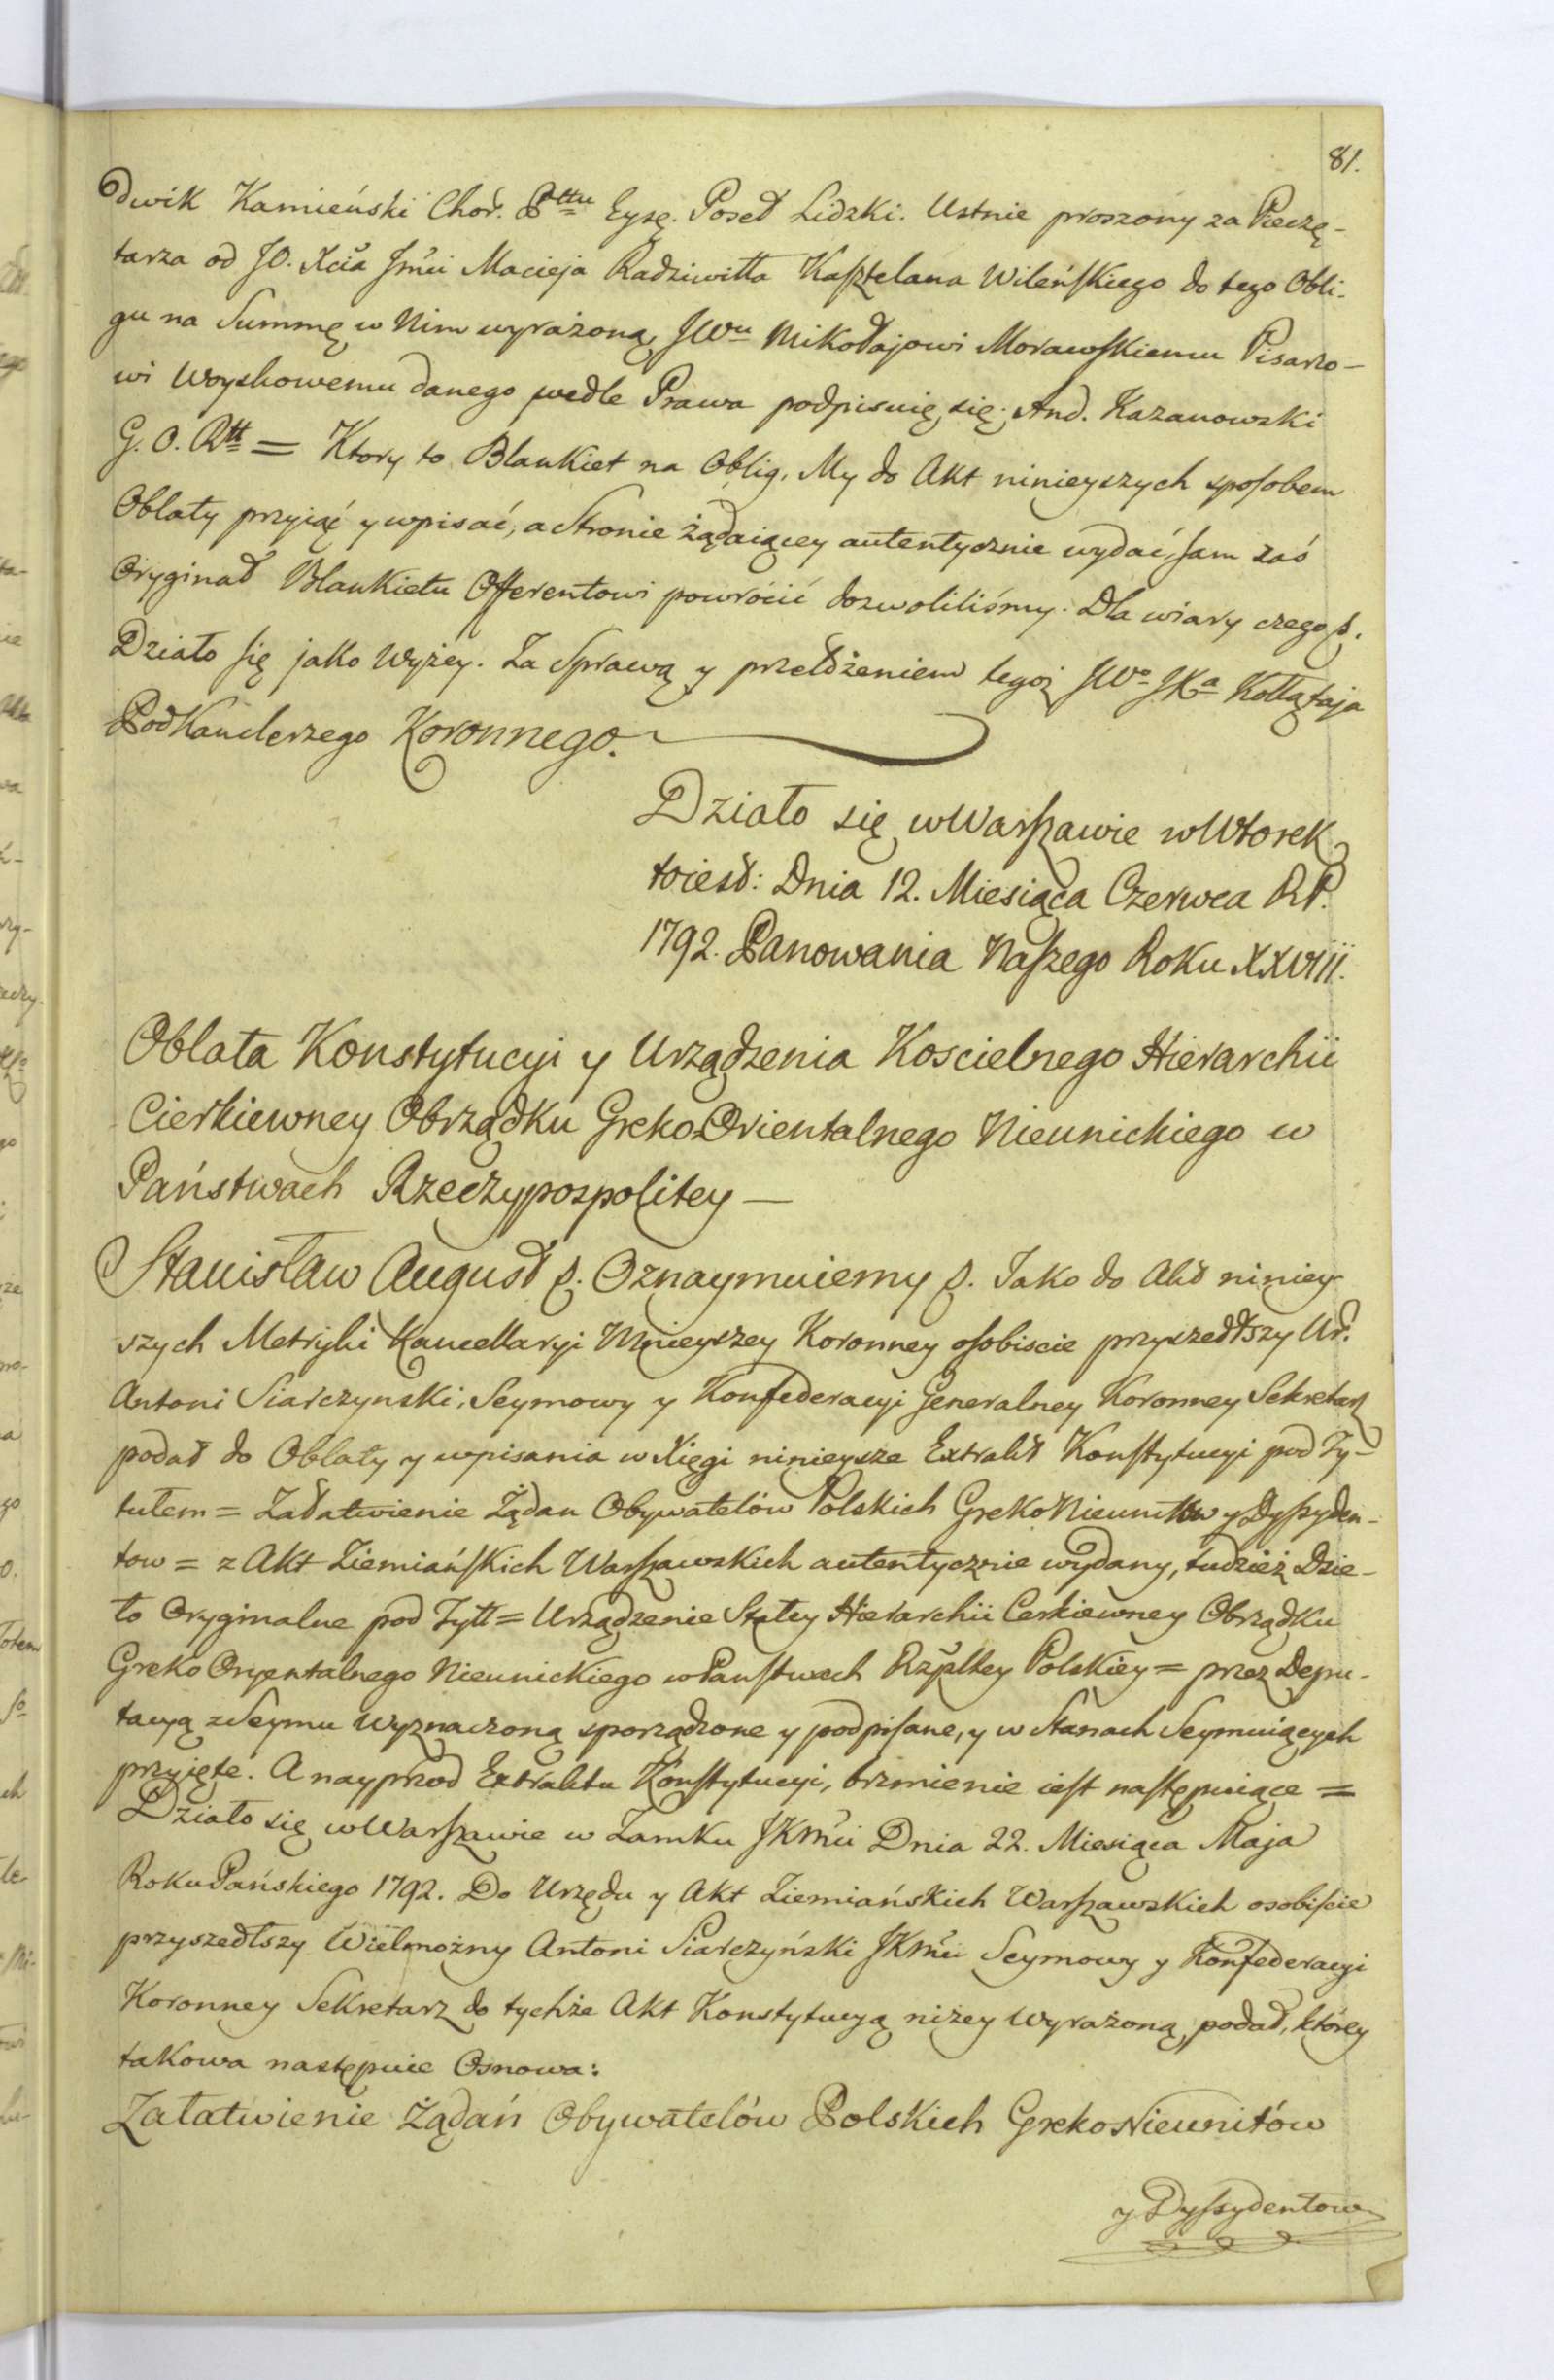 81.
dwik Kamieński Chor. Pttu Eysz. Poseł Lidzki. Ustnie proszony za Pieczę-
tarza od JO. Xcia Jmci Macieja Radziwiłła Kasztelana Wileńskiego do tego Obli-
gu na Summę w Nim wyrażoną JWu Mikołajowi Morawskiemu Pisarzo-
wi Woyskowemu danego wedle Prawa podpisuię się; And. Kazanowski
G. O. Rtt = Ktory to Blankiet na Oblig, My do Akt ninieyszych sposobem
Oblaty przyiąć y wpisać, a Stronie żądaiącey autentycznie wydać, sam zaś
Oryginał Blankietu Offerentowi powrócić dozwoliliśmy. Dla wiary czego &.
Działo się jako Wyżey. Za Sprawą y przełożeniem tegoż JWo JKa Kołłątaja
Podkanclerzego Koronnego.
Działo się w Warszawie w Wtorek
toiest: Dnia 12. Miesiąca Czerwca RP.
1792. Panowania Naszego Roku XXVIII.
Oblata Konstytucyi y Urządzenia Koscielnego Hierarchii
Cierkiewney Obrządku Greko Orientalnego Nieunickiego w
Państwach Rzeczypospolitey —
Stanisław August &. Oznaymuiemy &. Jako do Akt niniey-
szych Metryki Kancellaryi Mnieyszey Koronney osobiscie przyszedłszy Ur.
Antoni Siarczynski, Seymowy y Konfederacyi Generalney Koronney Sekretarz
podał do Oblaty y wpisania w Xięgi ninieysze Extrakt Konstytucyi pod Ty-
tułem = Załatwienie Żądan Obywatelów Polskich Greko Nieunitow y Dyssyden-
tow = z Akt Ziemiańskich Warszawskich autentycznie wydany, tudzież Dzie-
ło Oryginalne pod Tytt = Urządzenie Stałey Hierarchii Cerkiewney Obrządku
Greko Oryentalnego Nieunickiego w Panstwach Rzpltey Polskiey = przez Depu-
tacyą z Seymu wyznaczoną sporządzone y podpisane, y w Stanach Seymuiących
przyięte. A nayprzod Extraktu Konstytucyi, brzmienie iest następuiące =
Działo się w Warszawie w Zamku JKMci Dnia 22. Miesiąca Maja
Roku Pańskiego 1792. Do Urzędu y Akt Ziemiańskich Warszawskich osobiscie
przyszedłszy Wielmożny Antoni Siarczyński JKMci Seymowy y Konfederacyi
Koronney Sekretarz do tychże Akt Konstytucyą niżey wyrażoną podał, którey
takowa następuie Osnowa:
Załatwienie Żądań Obywatelów Polskich Greko Nieunitów
y Dyssydentow